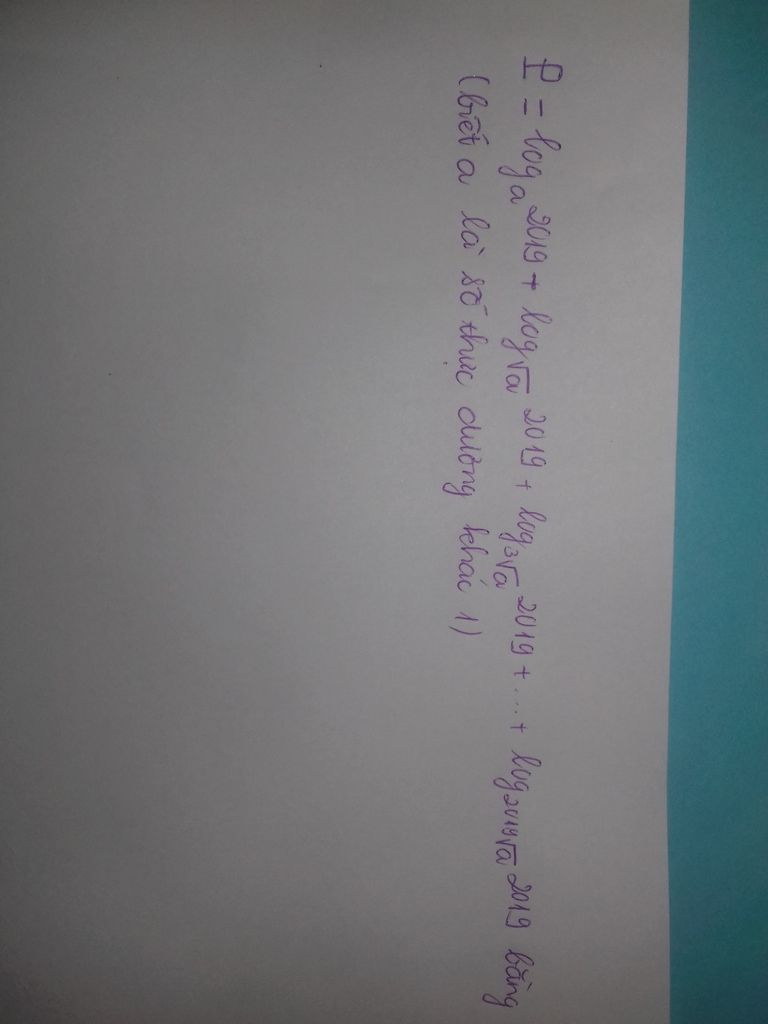 P = log_a 2019 + log_√a 2019 + log_³√a 2019 + ... + log_²⁰¹⁹√a 2019 bằng
(biết a là số thực dương khác 1)